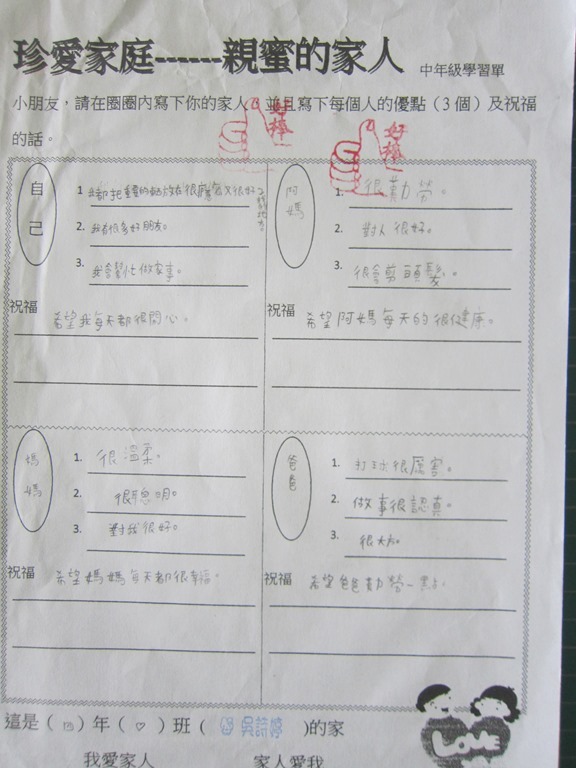 珍愛家庭------親蜜的家人 中年級學習單
小朋友，請在圈圈內寫下你的家人，並且寫下每個人的優點（3 個）及祝福
的話。
好棒
好棒
自己
1
2. 我有很多好朋友。
3. 我會幫忙做家事。
祝福 希望我每天都很開心。
阿媽
1. 很勤勞。
2. 對人很好。
3. 很會剪頭髮。
祝福 希望阿媽每天的很健康。
媽媽
1. 很溫柔。
2. 很聰明。
3. 對我很好。
祝福 希望媽媽每天都很幸福。
爸爸
1. 打球很厲害。
2. 做事很認真。
3. 很大方。
祝福 希望爸爸勤勞一點。
這是（四）年（♡）班（ 吳詩婷 )的家
我愛家人 家人愛我
LOVE